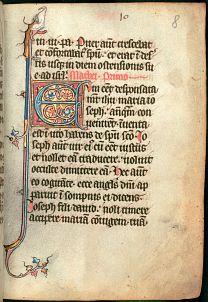 10
8
iu. iii. pa. Puer aut̄ crescebat
et cōfortabat̉ sp̄u. et erat ī̄ deser
tis usq; in diem ostensionis su
e ad isr̄l. Mathei Primo.
Cum eēt desponsata
mr̄ ih̄u maria io
seph. anteq̄m con
uenirēt īuenta
est ī ut̉o habens de sp̄u sc̄o. Io
seph aut̄ uir ei᷒ cū eēt iustus
et nollet eā traducere. uoluit
occulte dimittere eā. Hec aut̄
eo cogitāte. ecce angl̄s dn̄i ap
paruit ī sompnis ei dicens.
Ioseph fili dauid. noli timere
accipere mariā cōiugem tuā.